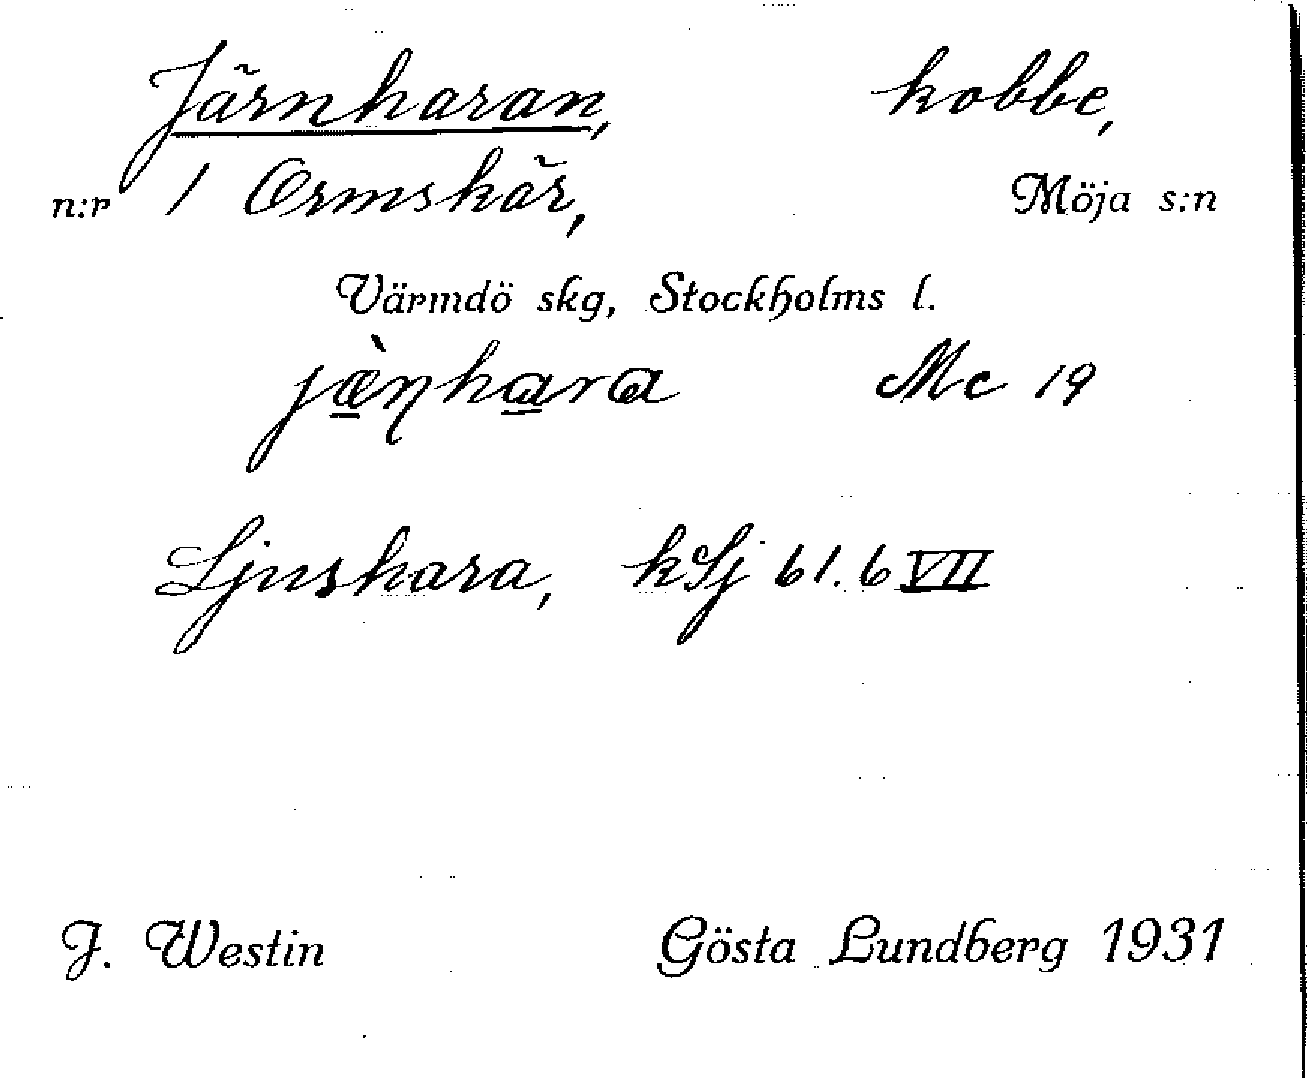 Järnharan, kobbe,
n:r 1 Ormskär, Möja s:n
Värmdö skg, Stockholms l.
jæ̀ṇhara Mc 19
Ljushara, kSj 61.6 VII
J. Westin Gösta Lundberg 1931